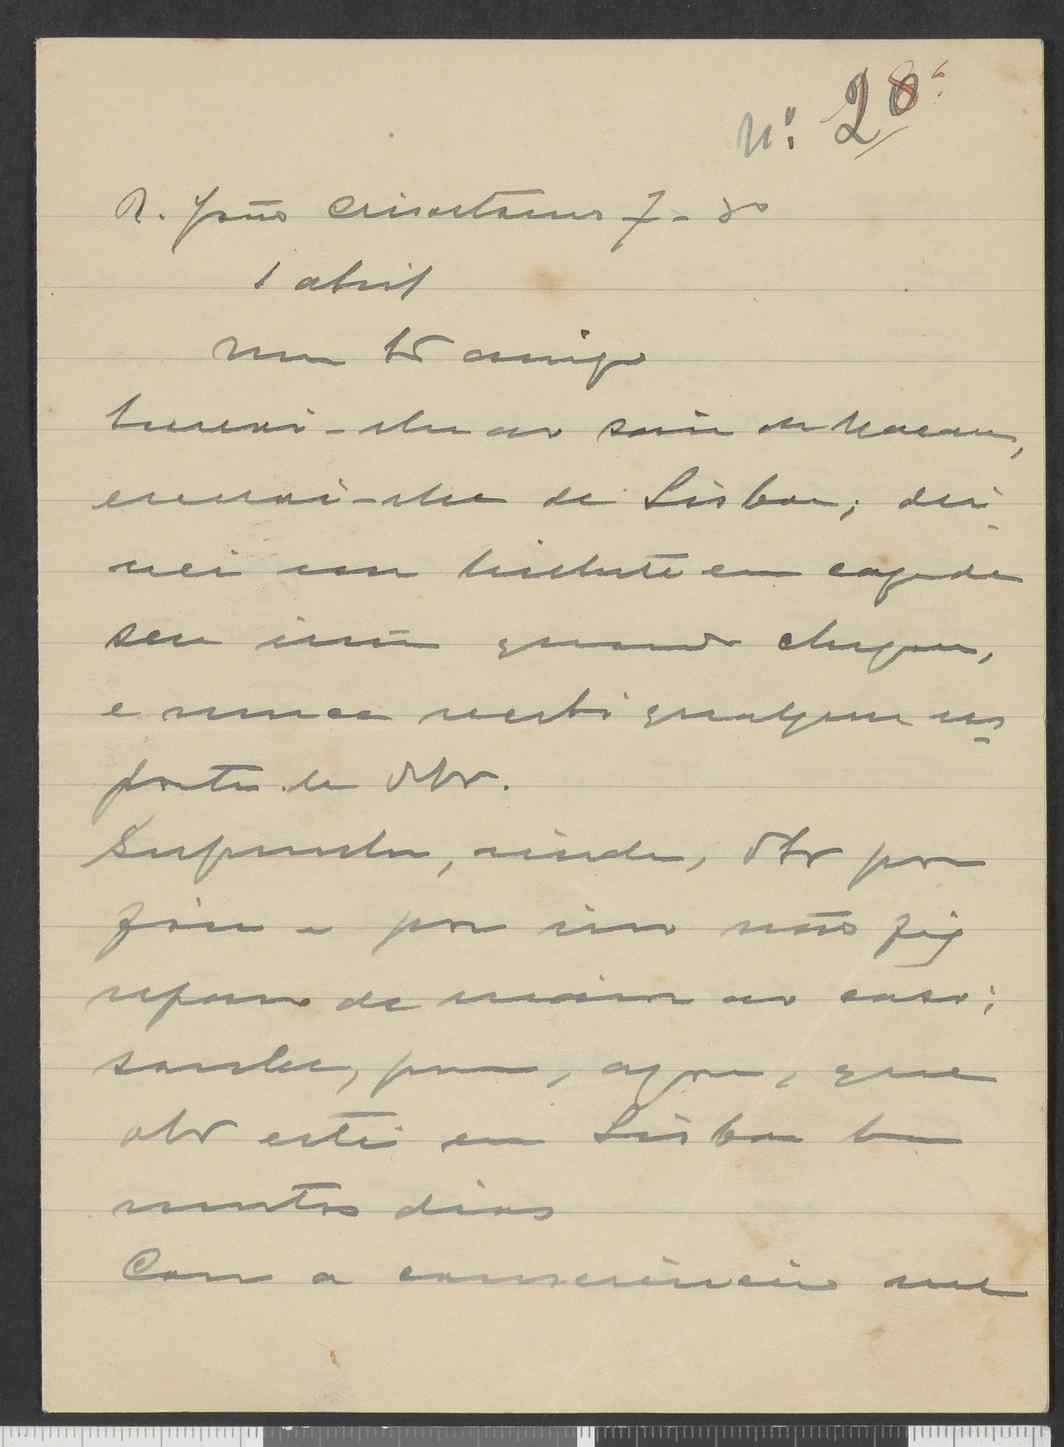 Nº: 20
R. João Crisostomo 7 - 3º
1 abril
Meu bo amigo
Escrevi-lhe ao sair de Macau,
escrevi-lhe de Lisboa; dei-
xei um bilhete em caza de
seu irmão quando chegou,
e nunca recebi qualquer res
posta de VExª.
Supunha, ainda, VExª por
fóra e por isso não fiz
reparo de maior ao caso;
soube, porem, agora, que
VExª está em Lisboa ha
muitos dias
Com a consciencia me